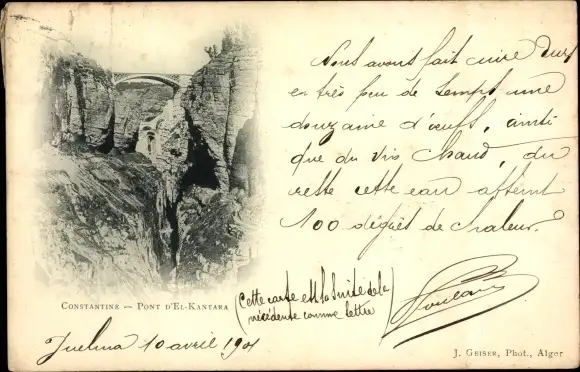 Nous avons fait cuire durs
en très peu de temps une
douzaine d'œufs, ainsi
que du vin chaud, du
reste cette eau atteint
100 dégrés de chaleur.
(Cette carte est la suite de la
précédente comme lettre)
CONSTANTINE — PONT D'EL-KANTARA
Guelma 10 avril 1901
J. GEISER, Phot., Alger